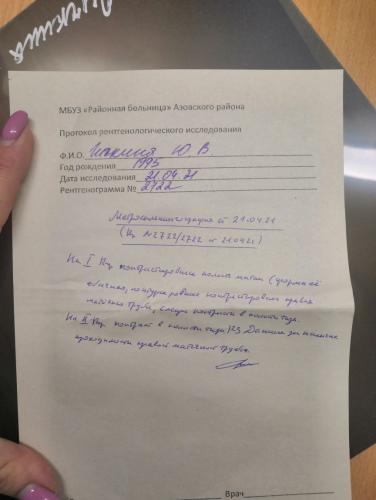 МБУЗ «Районная больница» Азовского района
Протокол рентгенологического исследования
Ф.И.О. Ю. В.
Год рождения 1995
Дата исследования 21.04.21
Рентгенограмма № 2722
Метросальпингография от 21.04.21
(Rg №2722/2722 от 21.04.21)
На I Rg контрастирована полость матки (форма её
обычная, контуры ровные контрастирована правая
маточная труба, следы контраста в полости таза.
На II Rg контраст в полости таза. Rg Данные за наличие
проходимости правой маточной трубы.
Врач